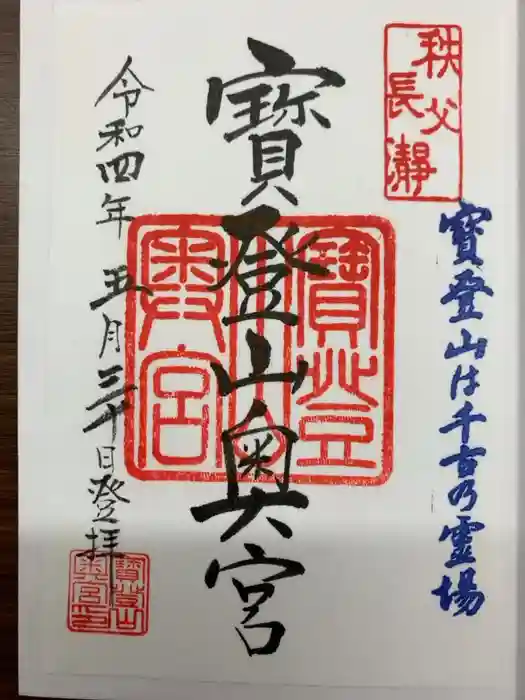 秩父
長瀞
寳登山は千古の霊場
寳登山奥宮
寳登山
奥宮
令和四年五月三十日登拝
寳登山
奥宮之印